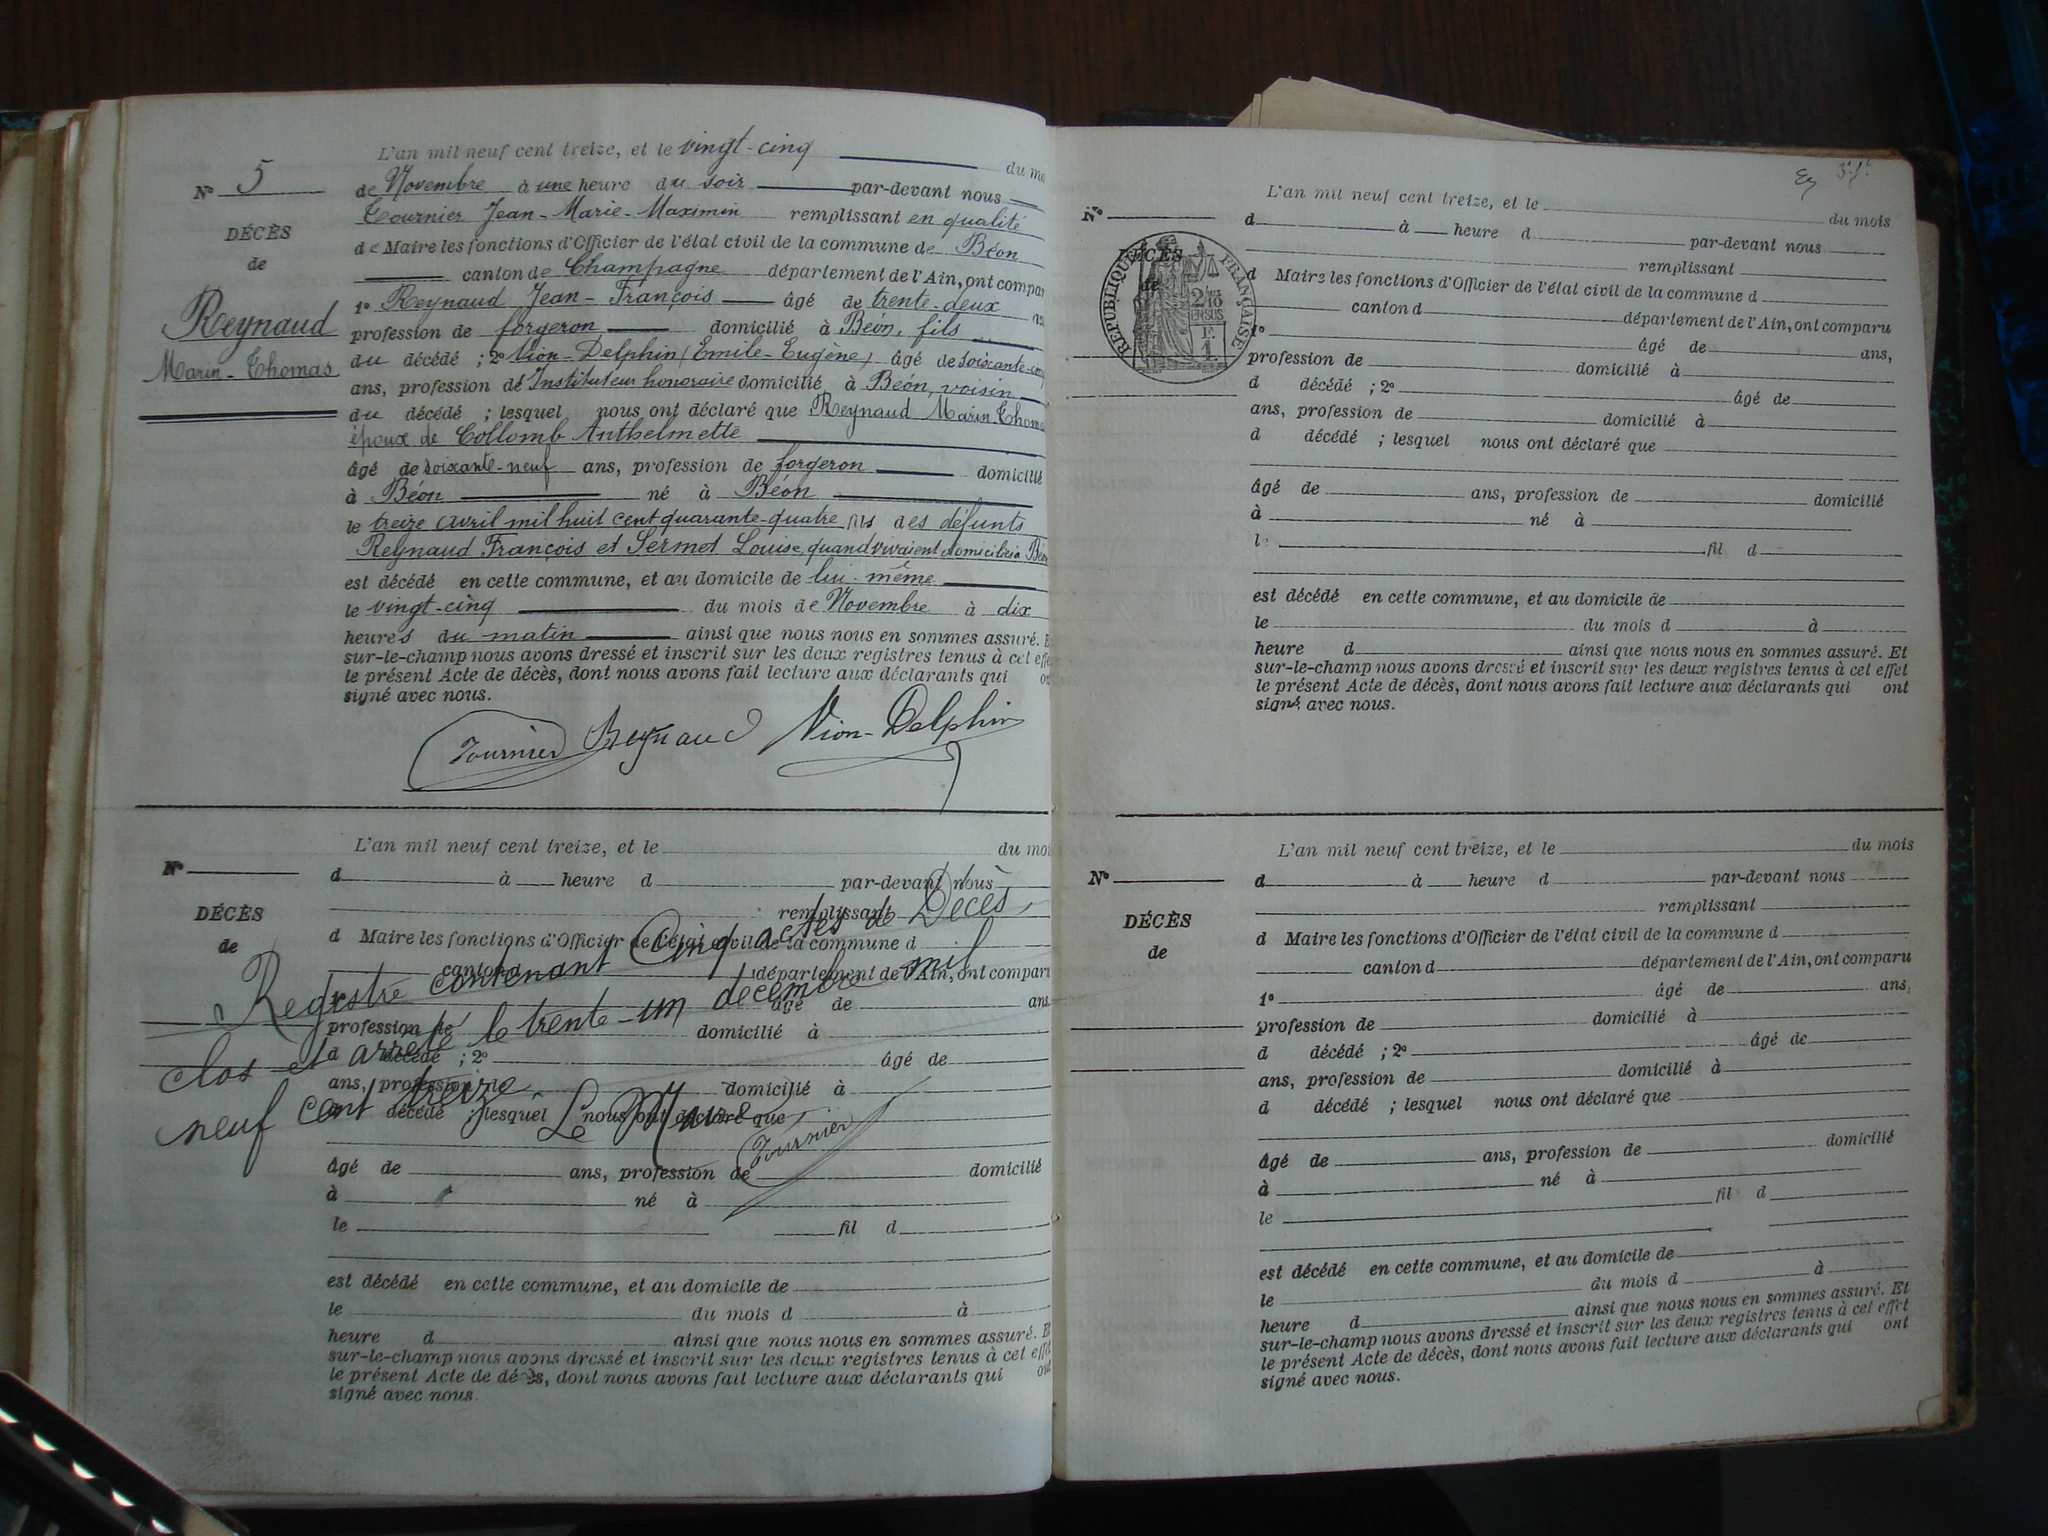 L'an mil neuf cent treize, et le vingt-cinq du mo
N° 5 de Novembre à une heure du soir par-devant nous
Tournier Jean-Marie-Maximin remplissant en qualité
DÉCÈS
de Maire les fonctions d'Officier de l'état civil de la commune de Béon
de
canton de Champagne département de l'Ain, ont compar
1° Reynaud Jean-François âgé de trente-deux an
Reynaud
profession de forgeron domicilié à Béon, fils
Marin-Thomas
du décédé ; 2° Vion-Delphin (Emile-Eugène) âgé de soixante-cinq
ans, profession de Instituteur honoraire domicilié à Béon, voisin
du décédé ; lesquel nous ont déclaré que Reynaud Marin-Thoma
époux de Collomb Anthelmette
âgé de soixante-neuf ans, profession de forgeron domicilié
à Béon né à Béon
le treize avril mil huit cent quarante-quatre fils des défunts
Reynaud François et Sermet Louise, quand vivaient domiciliés à Béon
est décédé en cette commune, et au domicile de lui-même
le vingt-cinq du mois de Novembre à dix
heures du matin ainsi que nous nous en sommes assuré. E
sur-le-champ nous avons dressé et inscrit sur les deux registres tenus à cet effe
le présent Acte de décès, dont nous avons fait lecture aux déclarants qui on
signé avec nous.
Tournier Reynaud Vion-Delphin
L'an mil neuf cent treize, et le du moi
N°
d à heure d par-devant nous
remplissant
DÉCÈS
d Maire les fonctions d'Officier de l'état civil de la commune d
de
canton d département de l'Ain, ont comparu
1° âgé de ans
profession de domicilié à
d décédé ; 2° âgé de
ans, profession de domicilié à
d décédé ; lesquel nous ont déclaré que
Registre contenant Cinq actes de Décès,
clos et arrêté le trente-un décembre mil
neuf cent treize
Le Maire
Tournier
âgé de ans, profession de domicilié
à né à
le fil d
est décédé en cette commune, et au domicile de
le du mois d à
heure d ainsi que nous nous en sommes assuré. Et
sur-le-champ nous avons dressé et inscrit sur les deux registres tenus à cet effet
le présent Acte de décès, dont nous avons fait lecture aux déclarants qui ont
signé avec nous.
L'an mil neuf cent treize, et le du mois
N°
d à heure d par-devant nous
remplissant
DÉCÈS
de
RÉPUBLIQUE FRANÇAISE
d Maire les fonctions d'Officier de l'état civil de la commune d
canton d département de l'Ain, ont comparu
1° âgé de ans,
profession de domicilié à
d décédé ; 2° âgé de
ans, profession de domicilié à
d décédé ; lesquel nous ont déclaré que
âgé de ans, profession de domicilié
à né à
le fil d
est décédé en cette commune, et au domicile de
le du mois d à
heure d ainsi que nous nous en sommes assuré. Et
sur-le-champ nous avons dressé et inscrit sur les deux registres tenus à cet effet
le présent Acte de décès, dont nous avons fait lecture aux déclarants qui ont
signé avec nous.
L'an mil neuf cent treize, et le du mois
N°
d à heure d par-devant nous
remplissant
DÉCÈS
d Maire les fonctions d'Officier de l'état civil de la commune d
de
canton d département de l'Ain, ont comparu
1° âgé de ans,
profession de domicilié à
d décédé ; 2° âgé de
ans, profession de domicilié à
d décédé ; lesquel nous ont déclaré que
âgé de ans, profession de domicilié
à né à
le fil d
est décédé en cette commune, et au domicile de
le du mois d à
heure d ainsi que nous nous en sommes assuré. Et
sur-le-champ nous avons dressé et inscrit sur les deux registres tenus à cet effet
le présent Acte de décès, dont nous avons fait lecture aux déclarants qui ont
signé avec nous.